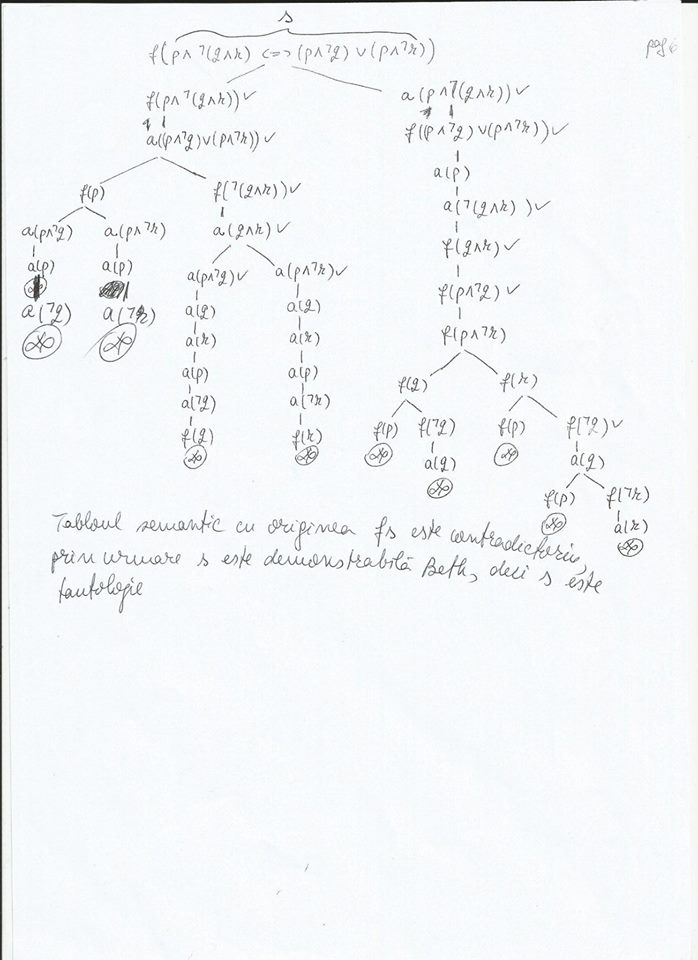 s
f(p∧¬(q∧r) <=> (p∧¬q) ∨ (p∧¬r)) pag 6
f(p∧¬(q∧r)) ✓ a(p∧¬(q∧r)) ✓
a((p∧¬q)∨(p∧¬r)) ✓ f((p∧¬q)∨(p∧¬r)) ✓
f(p) f(¬(q∧r)) ✓ a(p)
a(p∧¬q) a(p∧¬r) a(q∧r) ✓ a(¬(q∧r)) ✓
a(p) a(p) a(p∧¬q) ✓ a(p∧¬r) ✓ f(q∧r) ✓
a(¬q) a(¬r) a(q) a(q) f(p∧¬q) ✓
a(r) a(r) f(p∧¬r)
a(p) a(p) f(q) f(r)
a(¬q) a(¬r) f(p) f(¬q) f(p) f(¬q) ✓
f(q) f(r) a(q) a(q)
f(p) f(¬r)
a(r)
Tabloul semantic cu originea fs este contradictoriu,
prin urmare s este demonstrabilă Beth, deci s este
tautologie